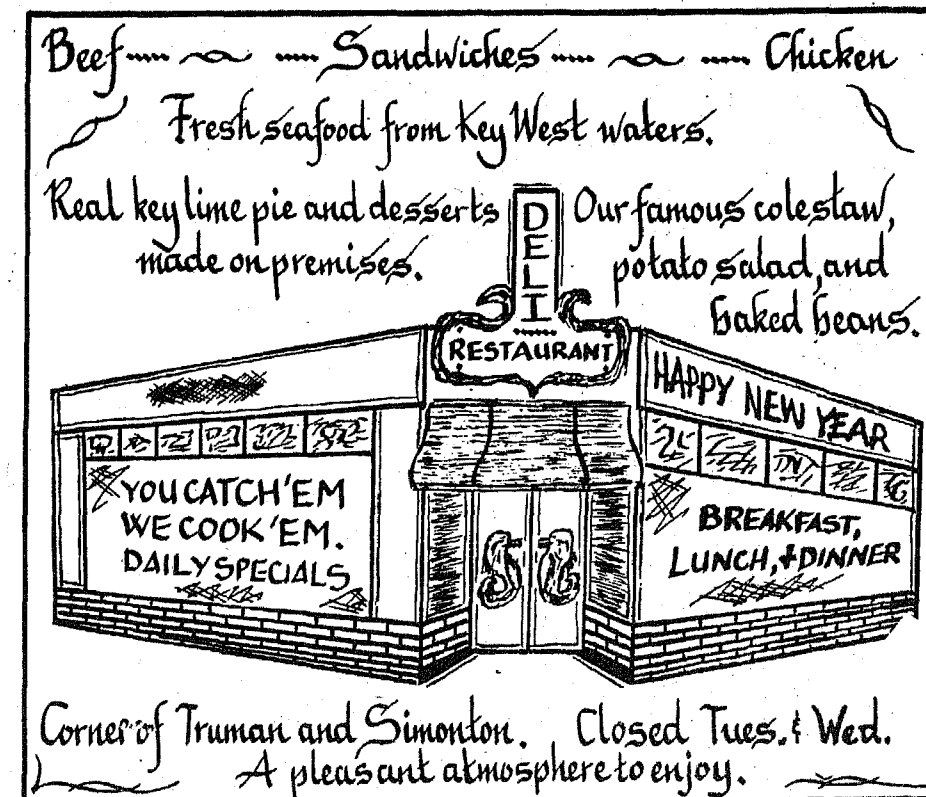 Beef Sandwiches Chicken
Fresh seafood from Key West waters.
Real key lime pie and desserts
made on premises.
Our famous coleslaw,
potato salad, and
baked beans.
DELI
RESTAURANT
HAPPY NEW YEAR
YOU CATCH 'EM
WE COOK 'EM.
DAILY SPECIALS
BREAKFAST,
LUNCH, + DINNER
Corner of Truman and Simonton. Closed Tues. & Wed.
A pleasant atmosphere to enjoy.